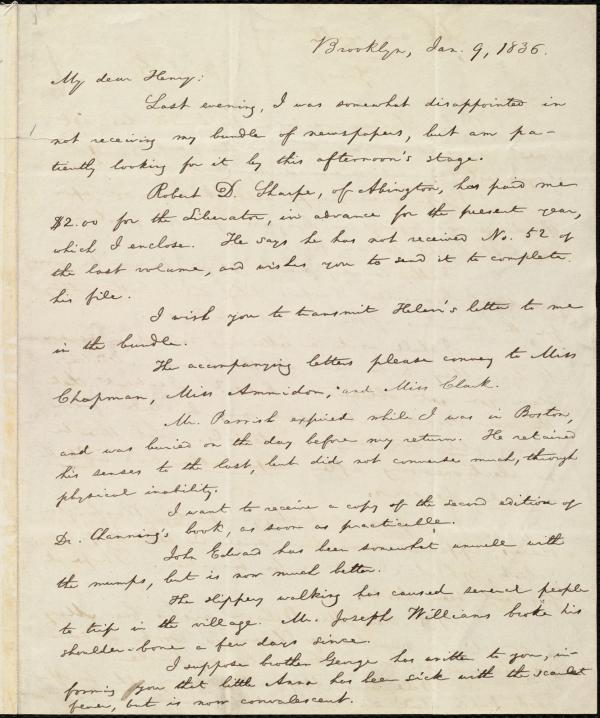 Brooklyn, Jan. 9, 1836.
My dear Henry:
Last evening, I was somewhat disappointed in
not receiving my bundle of newspapers, but am pa-
tiently looking for it by this afternoon's stage.
Robert D. Sharpe, of Abington, has paid me
$2.00 for the Liberator, in advance for the present year,
which I enclose. He says he has not received No. 52 of
the last volume, and wishes you to send it to complete
his file.
I wish you to transmit Helen's letter to me
in the bundle.
The accompanying letters please convey to Miss
Chapman, Miss Ammidon, and Miss Clark.
Mr. Parrish expired while I was in Boston,
and was buried on the day before my return. He retained
his senses to the last, but did not converse much, through
physical inability.
I want to receive a copy of the second edition of
Dr. Channing's book, as soon as practicable.
John Edward has been somewhat unwell with
the mumps, but is now much better.
The slippery walking has caused several people
to trip in the village. Mr. Joseph Williams broke his
shoulder-bone a few days since.
I suppose brother George has written to you, in-
forming you that little Anna has been sick with the scarlet
fever, but is now convalescent.